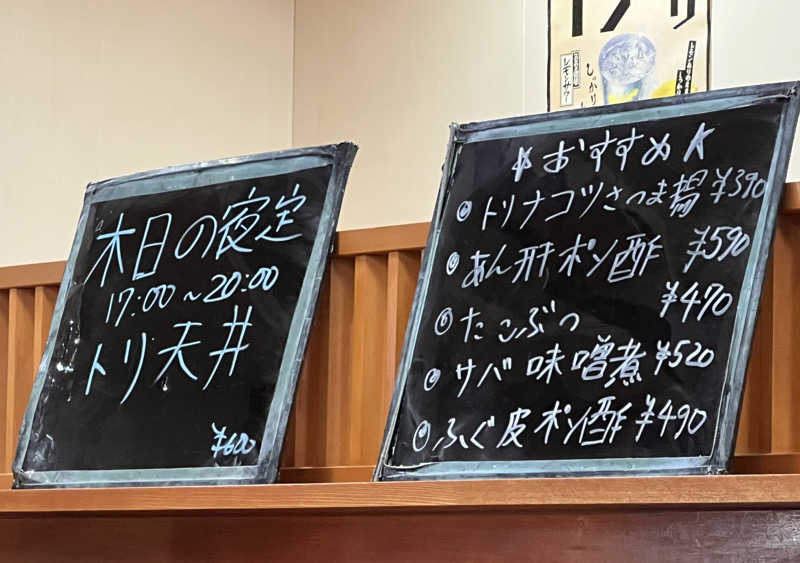 木日の夜定
17:00～20:00
トリ天丼
¥600
おすすめ
トリナコツさつま揚 ¥390
あん肝ポン酢 ¥590
たこぶつ ¥470
サバ味噌煮 ¥520
ふぐ皮ポン酢 ¥490
レモンサワー
しっかり